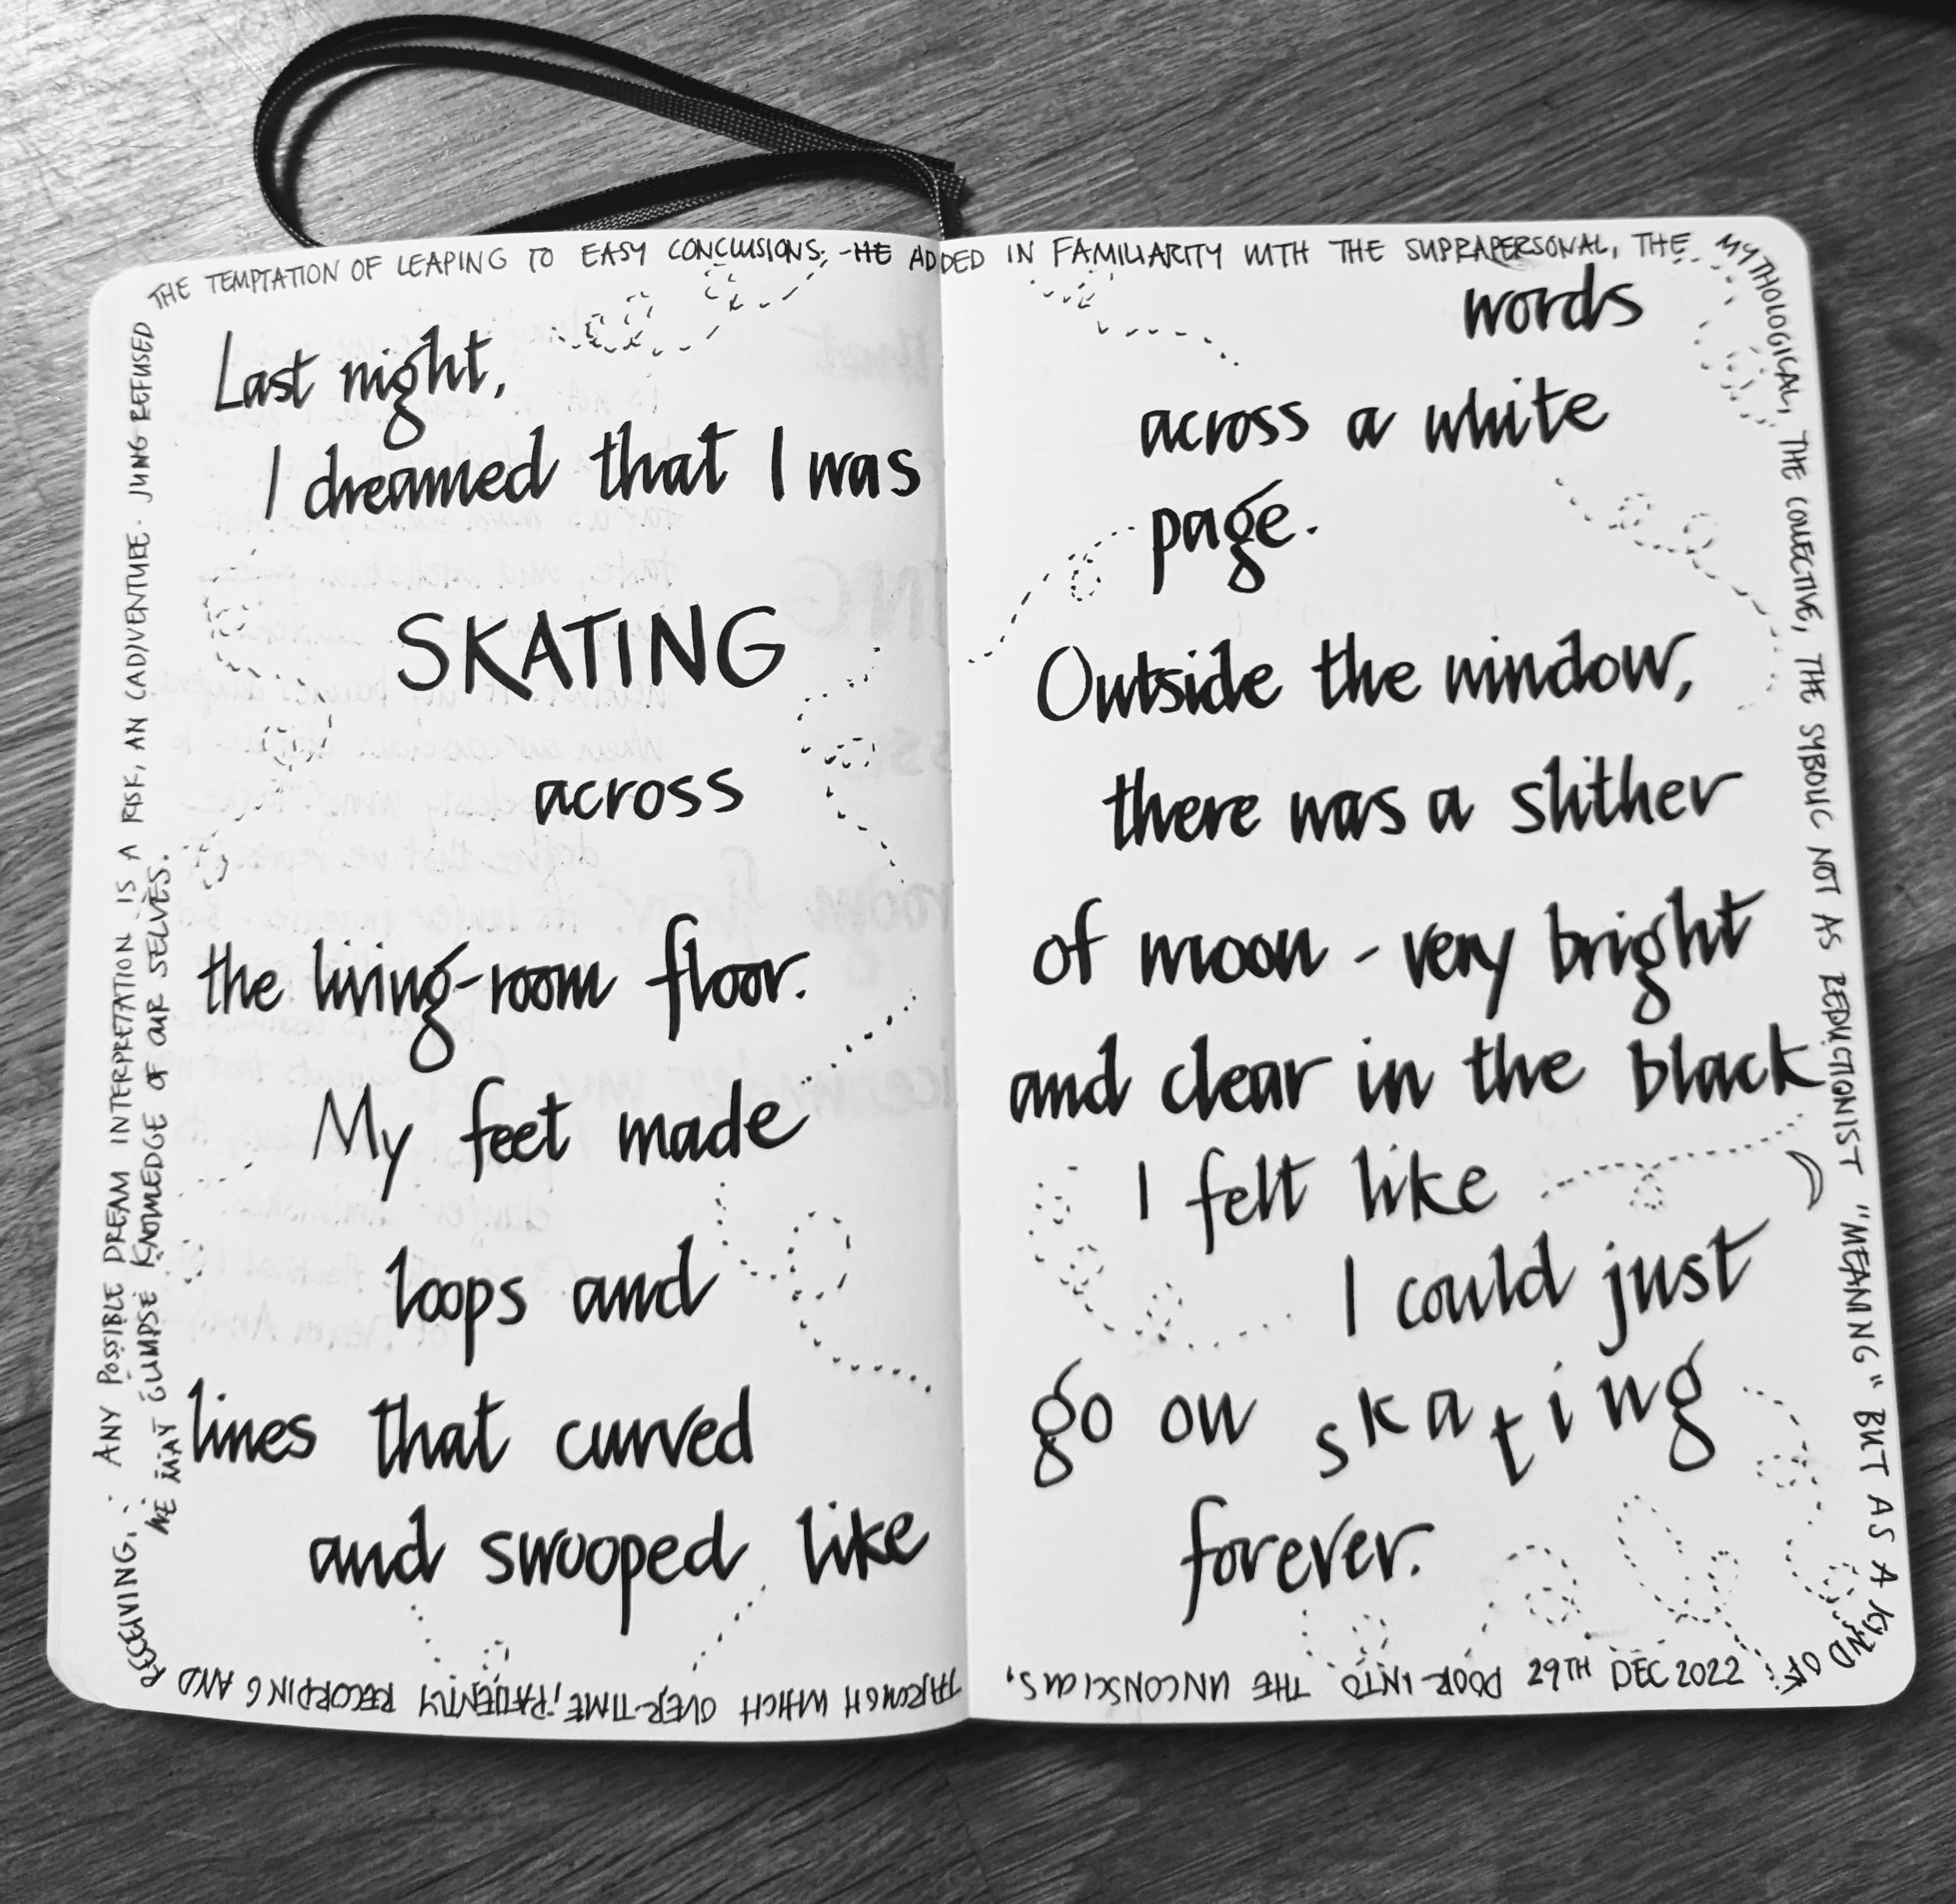 Last night,
I dreamed that I was
SKATING
across
the living-room floor.
My feet made
loops and
lines that curved
and swooped like
words
across a white
page.
Outside the window,
there was a slither
of moon - very bright
and clear in the black
I felt like
I could just
go on skating
forever.
29TH DEC 2022
ANY POSSIBLE DREAM INTERPRETATION IS A RISK, AN (AD)VENTURE. JUNG REFUSED
THE TEMPTATION OF LEAPING TO EASY CONCLUSIONS; -HE ADDED IN FAMILIARITY WITH THE SUPRAPERSONAL, THE
MYTHOLOGICAL, THE COLLECTIVE, THE SYBOLIC NOT AS REDUCTIONIST "MEANING" BUT AS A KIND OF
DOOR INTO THE UNCONSCIOUS,
THROUGH WHICH OVER-TIME, PATIENTLY RECORDING AND
RECEIVING,
WE MAY GLIMPSE KNOWLEDGE OF OUR SELVES.